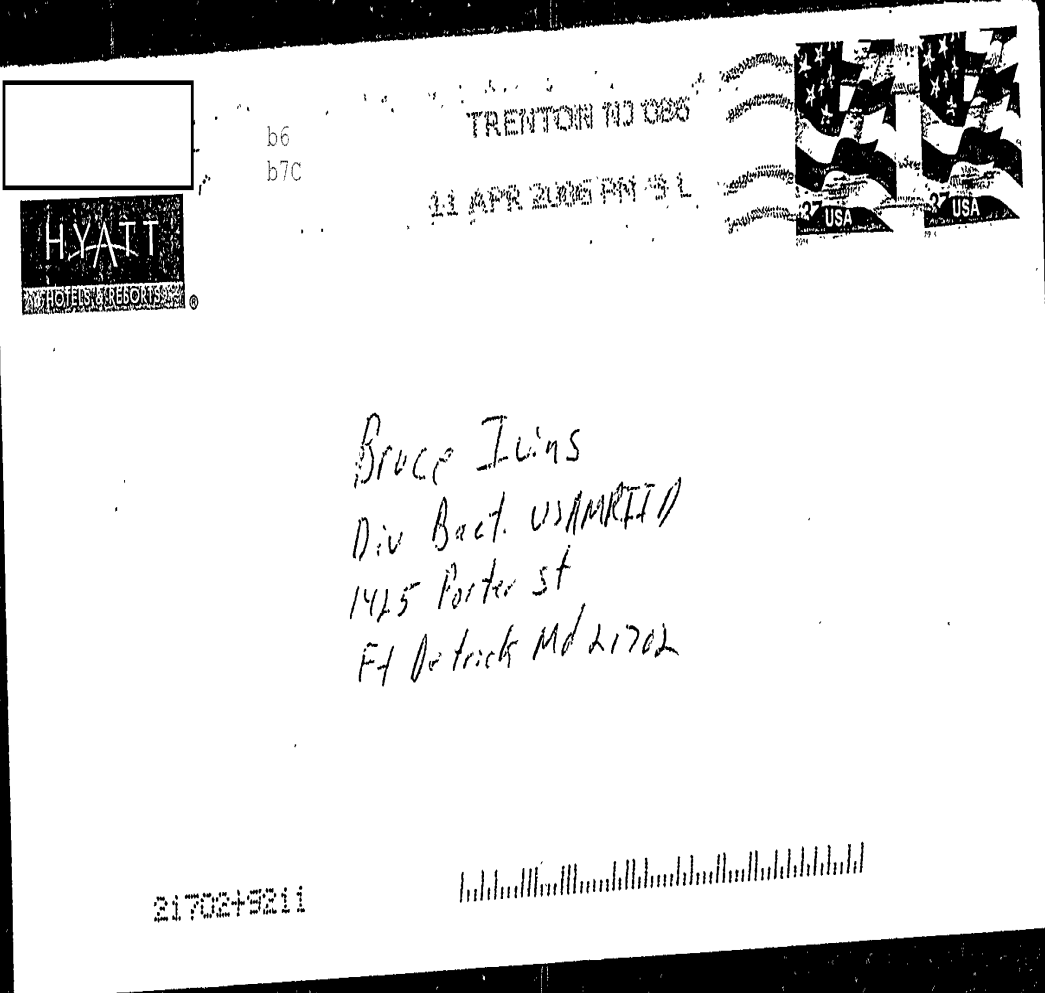 b6
b7C
TRENTON NJ 086
11 APR 2006 PM 9 L
37 USA
37 USA
HYATT
HOTELS & RESORTS
®
Bruce Ivins
Div Bact. USAMRIID
1425 Porter St
Ft Detrick Md 21702
21702+9211